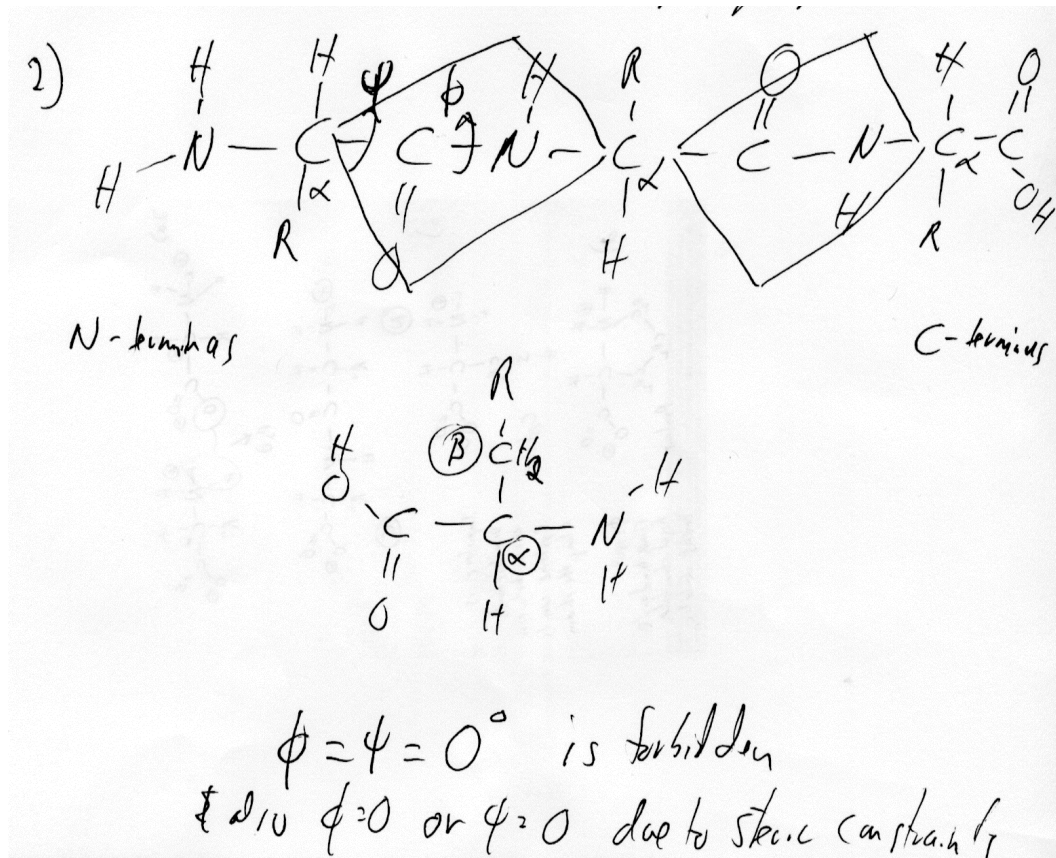 2)
H H H R O H O
H N C α ψ C φ N C α C N C α C
R O H H R OH
N-terminas C-terminus
R
H β CH2 H
O C C α N
O H H
φ = ψ = 0° is forbidden
& also φ=0 or ψ=0 due to steric constraints